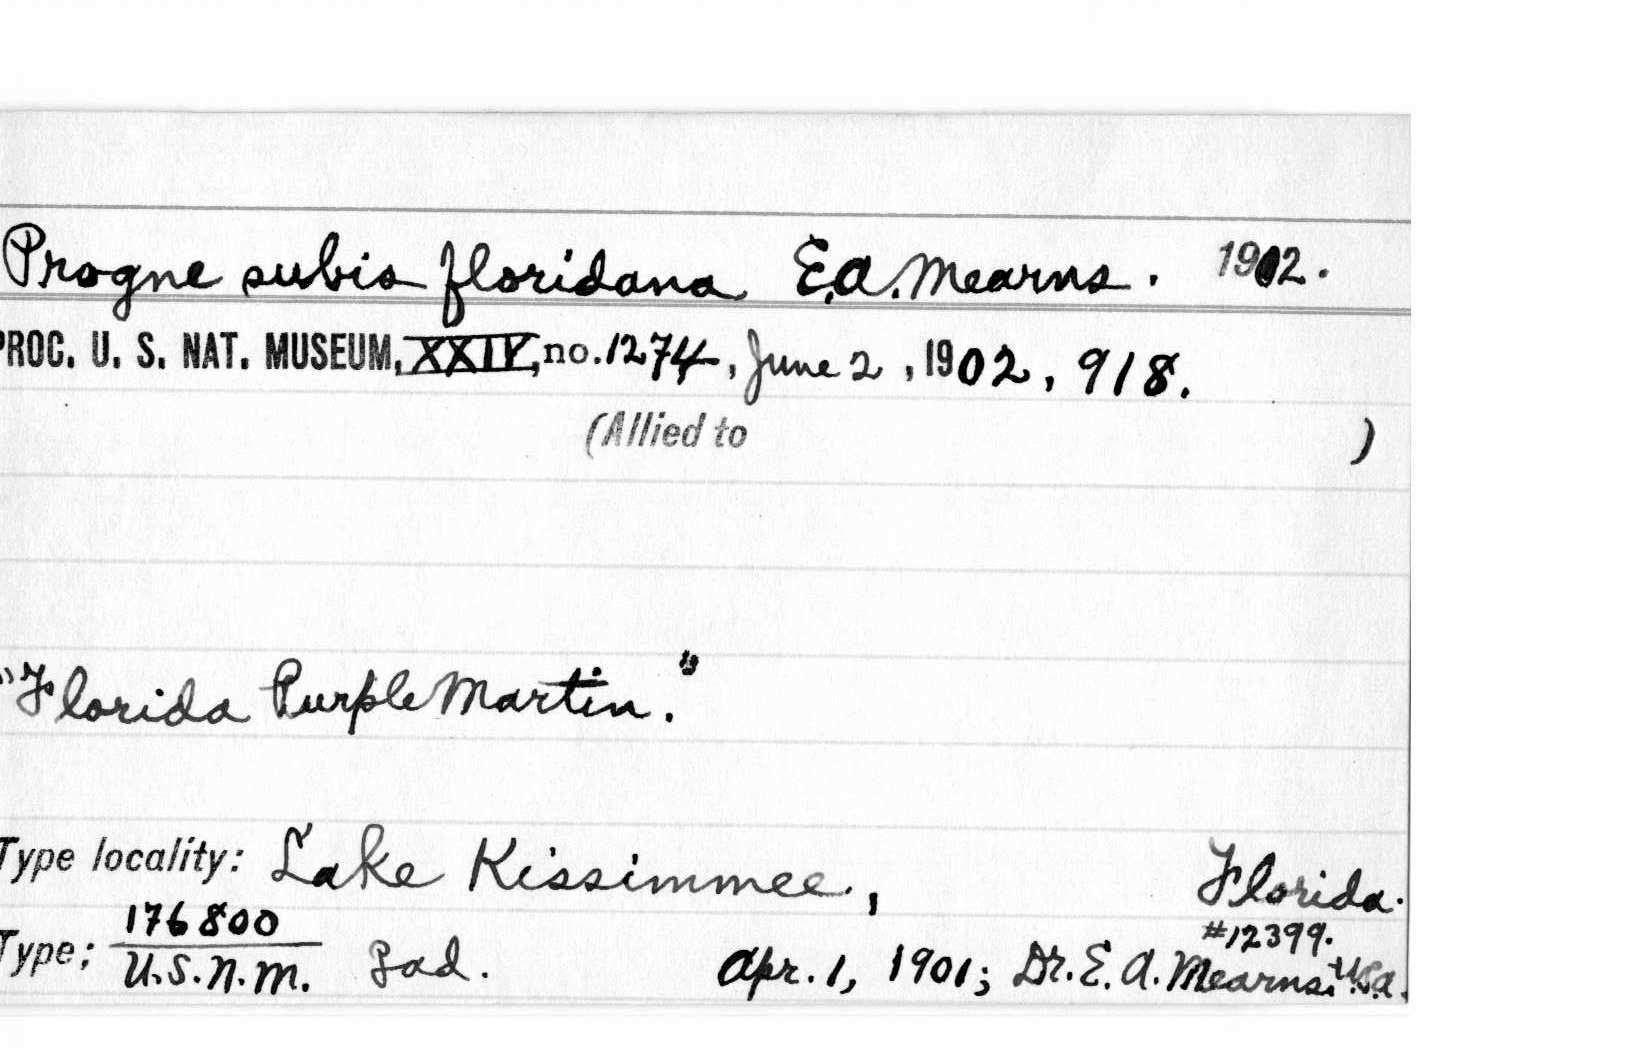 Progne subis floridana E.A. Mearns. 1902.
PROC. U. S. NAT. MUSEUM, XXIV, no. 1274, June 2, 1902, 918.
(Allied to )
"Florida Purple Martin."
Type locality: Lake Kissimmee, Florida.
Type; 176800 #12399.
U.S.N.M. ad. Apr. 1, 1901; Dr. E. A. Mearns, U.S.A.